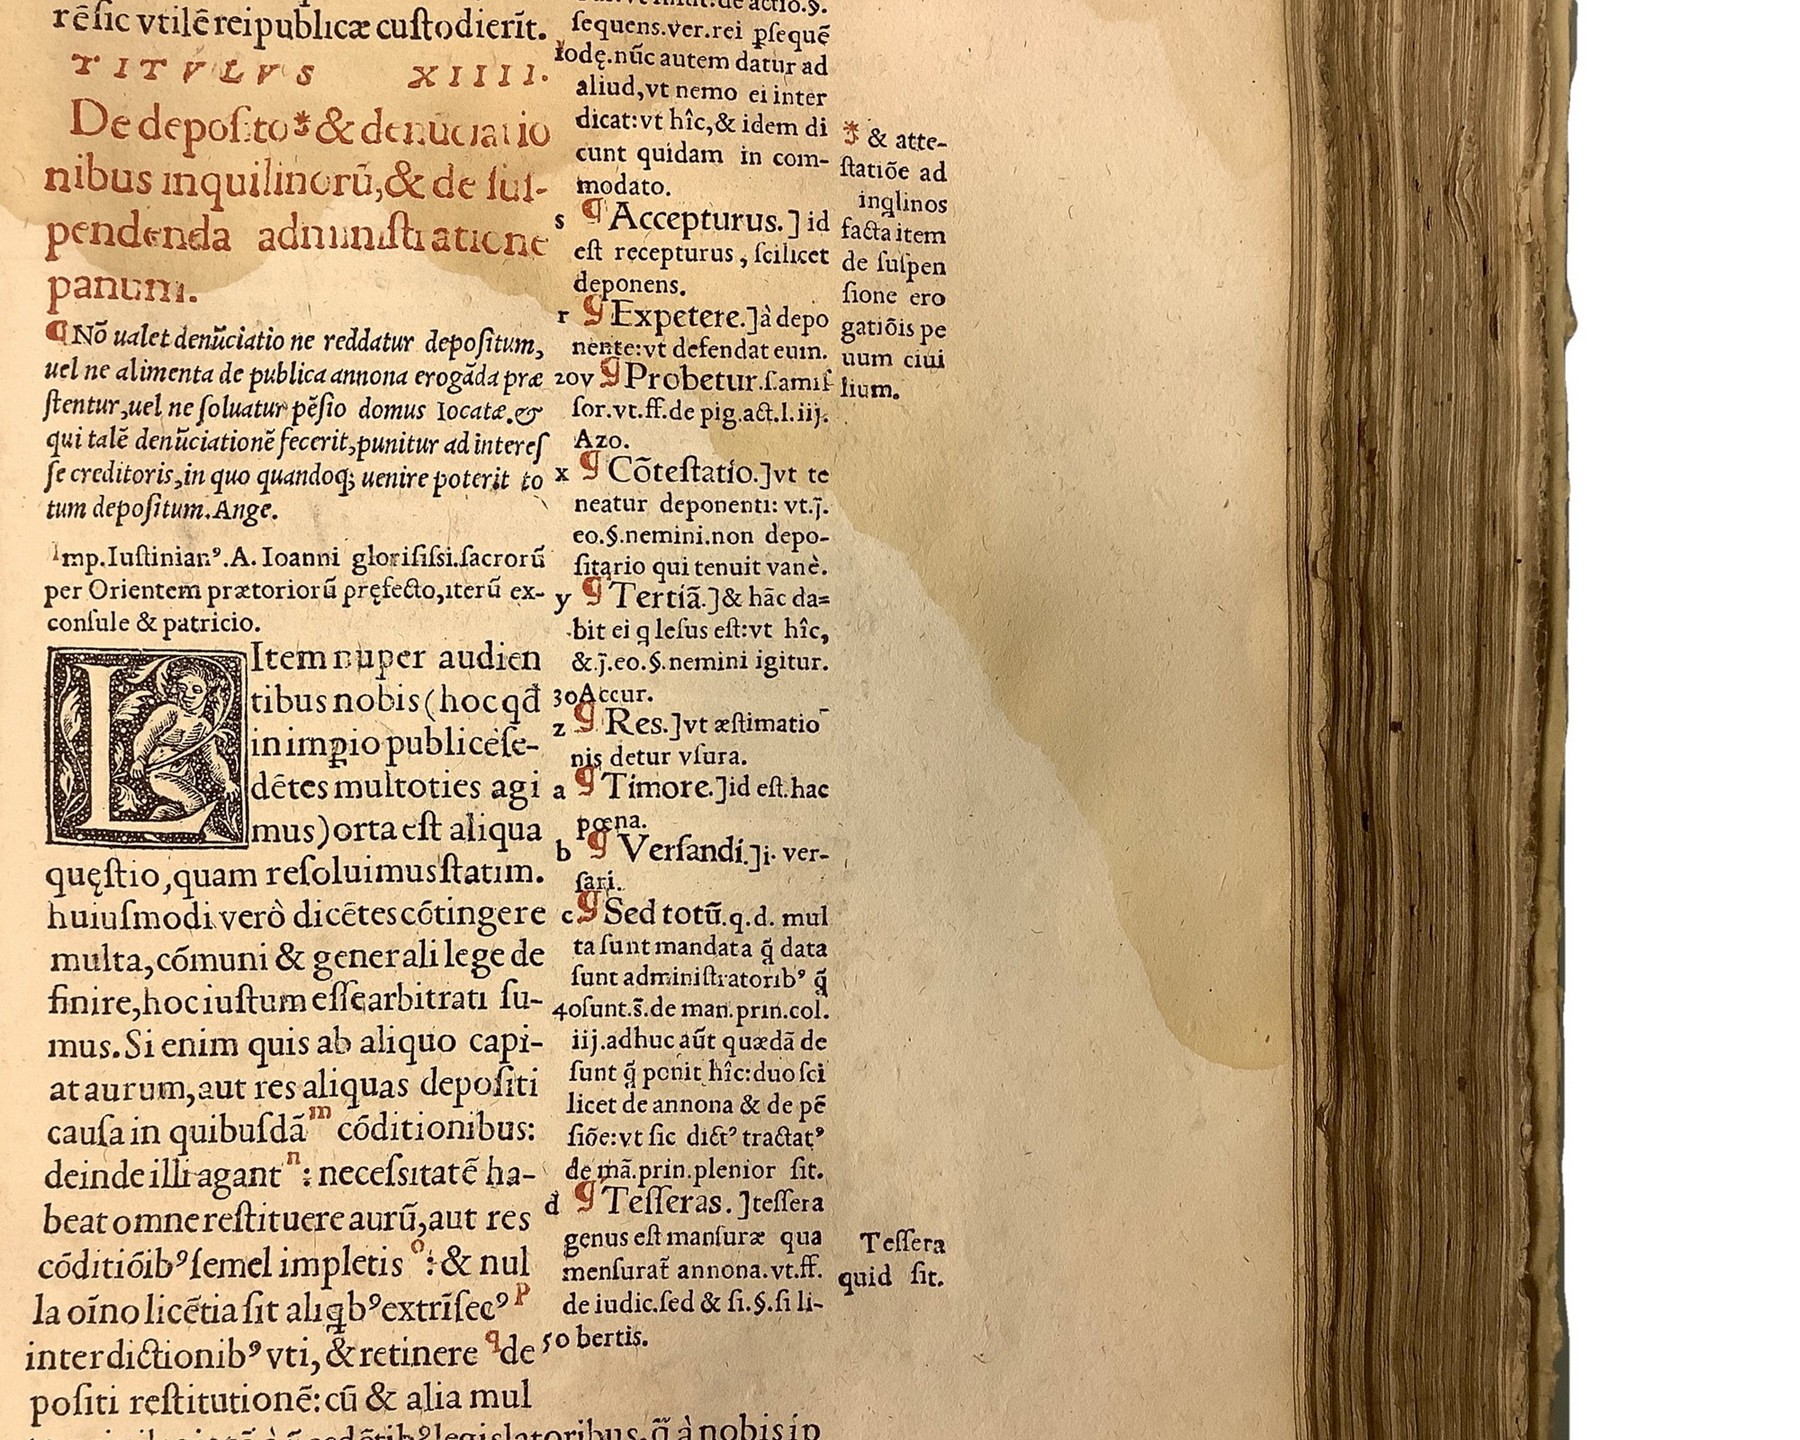 rēſic vtilē reipublicæ cuſtodierīt.
TITVLVS XIIII.
De depoſito* & denūciatio
nibus inquilinorū, & de ſuſ-
pendenda adminiſtratione
panum.
¶ Nō ualet denūciatio ne reddatur depoſitum,
uel ne alimenta de publica annona erogāda præ
ſtentur, uel ne ſoluatur pēſio domus locatæ. &
qui talē denūciationē fecerit, punitur ad intereſ
ſe creditoris, in quo quandoq; uenire poterit to
tum depoſitum. Ange.
Imp. Iuſtinianꝰ. A. Ioanni glorisiſsi. ſacrorū
per Orientem prætoriorū pręfecto, iterū ex-
conſule & patricio.
LItem nuper audien
tibus nobis (hoc qđ
in imꝑio publicè ſe-
dētes multoties agi
mus) orta eſt aliqua
quęſtio, quam reſoluimus ſtatim.
huiuſmodi verò dicētes cōtingere
multa, cōmuni & generali lege de
finire, hoc iuſtum eſſe arbitrati ſu-
mus. Si enim quis ab aliquo capi-
at aurum, aut res aliquas depoſiti
cauſa in quibuſdā m cōditionibus:
deinde illi agant n : neceſsitatē ha-
beat omne reſtituere aurū, aut res
cōditiōibꝰ ſemel impletis o : & nul
la oīno licētia ſit aliqbꝰ extrīſecꝰ p
interdictionibꝰ vti, & retinere q de
poſiti reſtitutionē: cū & alia mul
legislatoribus, q̃ à nobis ip
ſequens. ver. rei ꝑſequē
dę. nūc autem datur ad
aliud, vt nemo ei inter
dicat: vt hîc, & idem di
cunt quidam in com-
modato.
s ¶ Accepturus.] id
eſt recepturus, ſcilicet
deponens.
r ¶ Expetere.] à depo
nente: vt defendat eum.
20v ¶ Probetur. ſ. amiſ
ſor. vt. ff. de pig. act. l. iij.
Azo.
x ¶ Cōteſtatio.] vt te
neatur deponenti: vt. j̄.
eo. §. nemini. non depo-
ſitario qui tenuit vanè.
y ¶ Tertiā.] & hāc da=
bit ei q læſus eſt: vt hîc,
&. j̄. eo. §. nemini igitur.
30 Accur.
z ¶ Res.] vt æſtimatio
nis detur vſura.
a ¶ Timore.] id eſt. hac
pœna.
b ¶ Verſandi.] i. ver-
ſari.
c ¶ Sed totū. q. d. mul
ta ſunt mandata q̃ data
ſunt adminiſtratoribꝰ q̃
40 ſunt. s̄. de man. prin. col.
iij. adhuc aūt quædā de
ſunt q̃ ponit hîc: duo ſci
licet de annona & de pē
ſiōe: vt ſic dictꝰ tractatꝰ
de mā. prin. plenior ſit.
d ¶ Teſſeras.] teſſera
genus eſt manſuræ qua
menſurat̄ annona. vt. ff.
de iudic. ſed & ſi. §. ſi li-
50 bertis.
* & atte-
ſtatiōe ad
inqlinos
facta item
de ſuſpen
ſione ero
gatiōis pe
uum ciui
lium.
Teſſera
quid ſit.